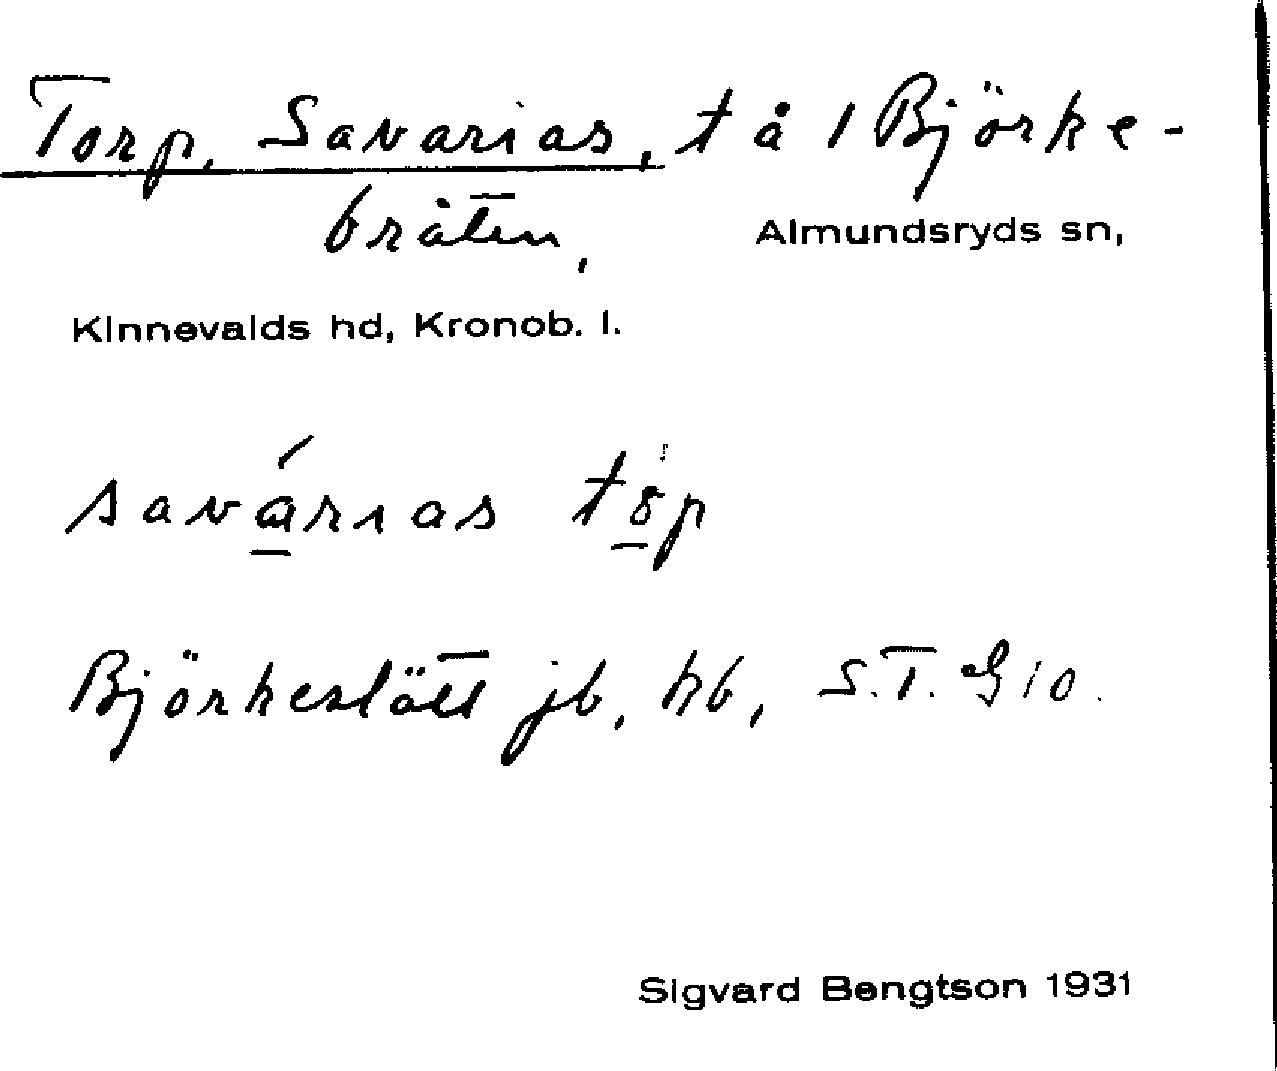 Torp, Savarias, t å 1 Björke-
bråten, Almundsryds sn,
Kinnevalds hd, Kronob. l.
savárias töp
Björkeslätt jb, hb, S.T. G 10.
Sigvard Bengtson 1931